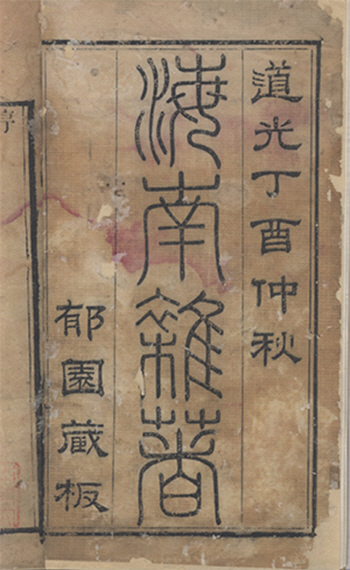 道光丁酉仲秋
海南雜著
郁園藏板
序